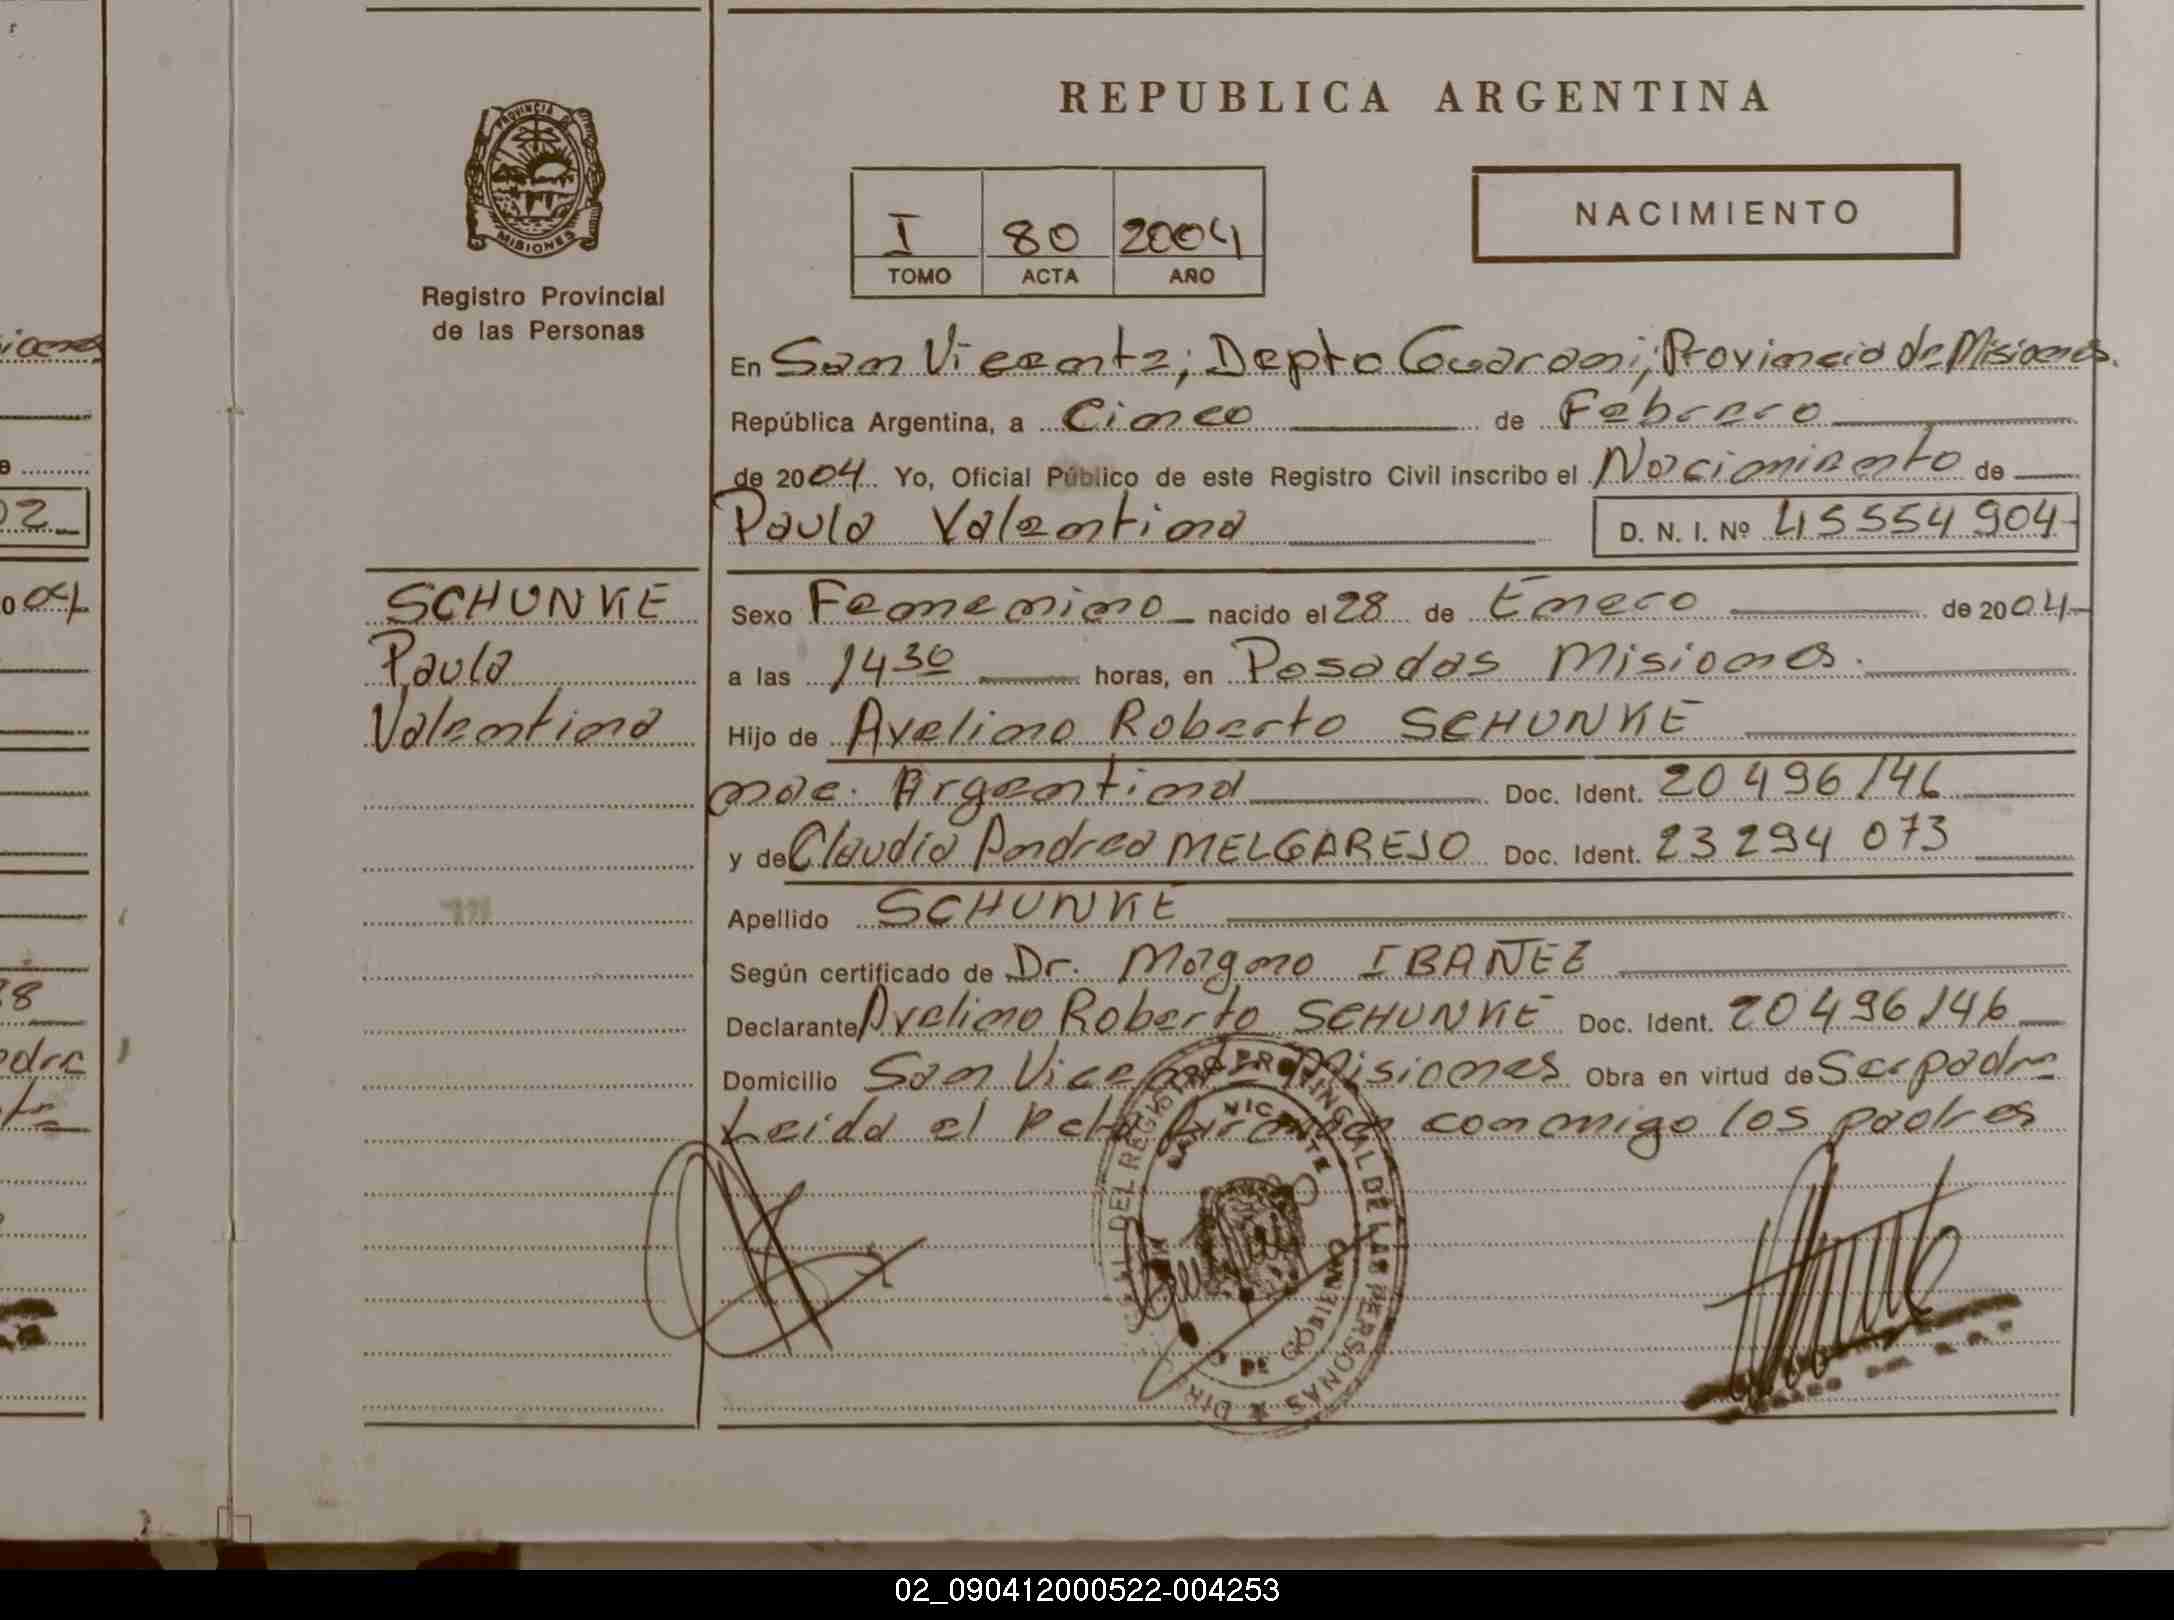 REPUBLICA ARGENTINA
PROVINCIA DE
MISIONES
Registro Provincial
de las Personas
I 80 2004
TOMO ACTA AÑO
NACIMIENTO
En San Vicente; Depto Guarani; Provincia de Misiones.
República Argentina, a Cinco de Febrero
de 2004 Yo, Oficial Público de este Registro Civil inscribo el Nacimiento de
Paula Valentina D. N. I. Nº 45554904
SCHUNKE
Paula
Valentina
Sexo Femenino nacido el 28 de Enero de 2004
a las 1430 horas, en Posadas Misiones.
Hijo de Avelino Roberto SCHUNKE
nac. Argentina Doc. Ident. 20 496 146
y de Claudia Andrea MELGAREJO Doc. Ident. 23 294 073
Apellido SCHUNKE
Según certificado de Dr. Magno IBAÑEZ
Declarante Avelino Roberto SCHUNKE Doc. Ident. 20 496 146
Domicilio San Vicente Misiones Obra en virtud de Ser padre
Leida el Acta firman conmigo los padres
SAN VICENTE
DEL REGISTRO PROVINCIAL DE LAS PERSONAS
DE GOBIERNO
02_090412000522-004253